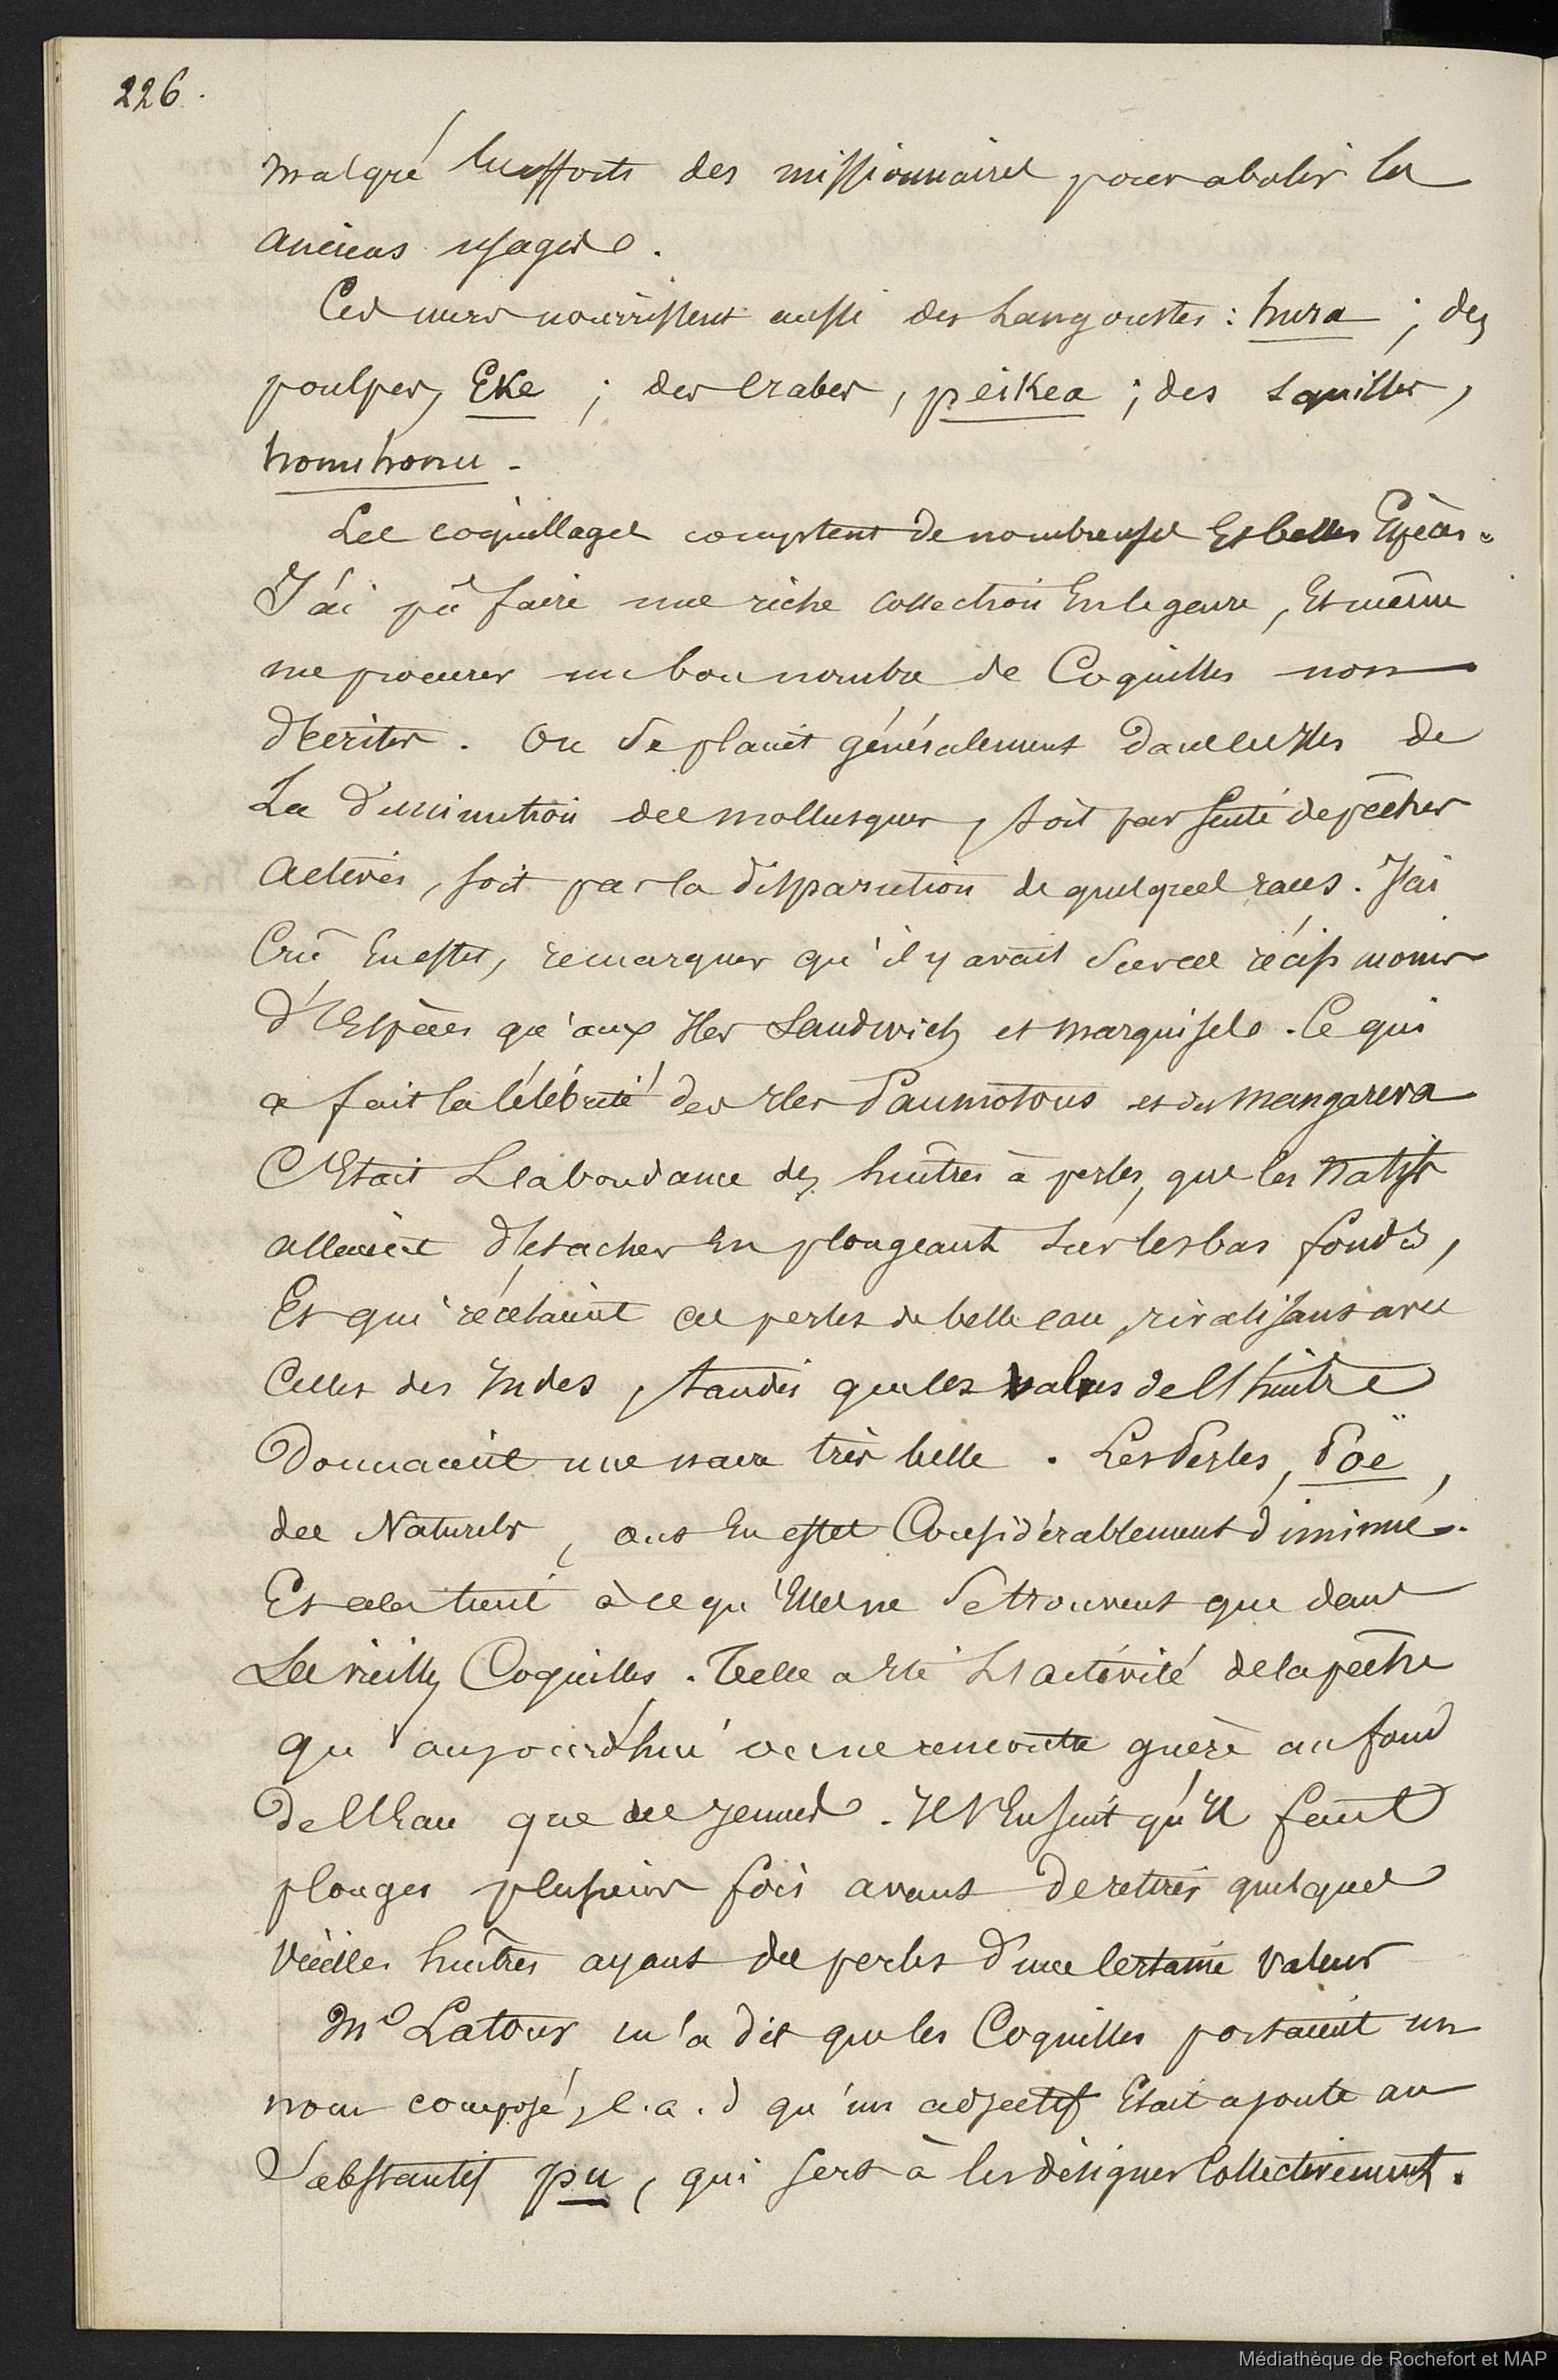 226.
malgré les efforts des missionnaires pour abolir les
anciens usages.
Ces mers nourrissent aussi des Langoustes : hura ; des
poulpes, Eke ; des Crabes, peikea ; des squilles,
honuhonu.
Les coquillages comptent de nombreuses Et belles Espèces.
J'ai pû faire une riche Collection En le genre, Et même
me procurer un bon nombre de Coquilles non
décrites. On se plaint généralement dans les Iles de
La diminution des mollusques, soit par suite de pêches
actives, soit par la disparution de quelques races. J'ai
Crû En effet, remarquer qu'il y avait sur ces récifs moins
d'Espèces qu'aux Iles Sandwich et marquises. Ce qui
a fait la Célébrité des Iles Paumotous et des Mangareva
C'Etait L'abondance des huîtres à perles, que les Natifs
allaient détacher En plongeant sur les bas fonds,
Et qui recelaient ces perles de belle eau, rivalisant avec
Celles des Indes, tandis que les valves de l'huître
Donnaient une nacre très belle. Les Perles, Poë,
des Naturels, ont En effet Considérablement diminué.
Et cela tient à ce qu'Elles ne se trouvent que dans
Les vieilles Coquilles. Telle a Eté L'activité de la pêche
qu'aujourd'hui on ne rencontre guère au fond
De l'Eau que des jeunes. Il s'Ensuit qu'Il faut
plonger plusieurs fois avant de retirer quelques
vieilles huîtres ayant des perles d'une Certaine valeur
Mr Latour m'a dit que les Coquilles portaient un
nom composé, c.a.d qu'un adjectif Etait ajouté au
Substantif pu, qui sert à les désigner Collectivement.
Médiathèque de Rochefort et MAP